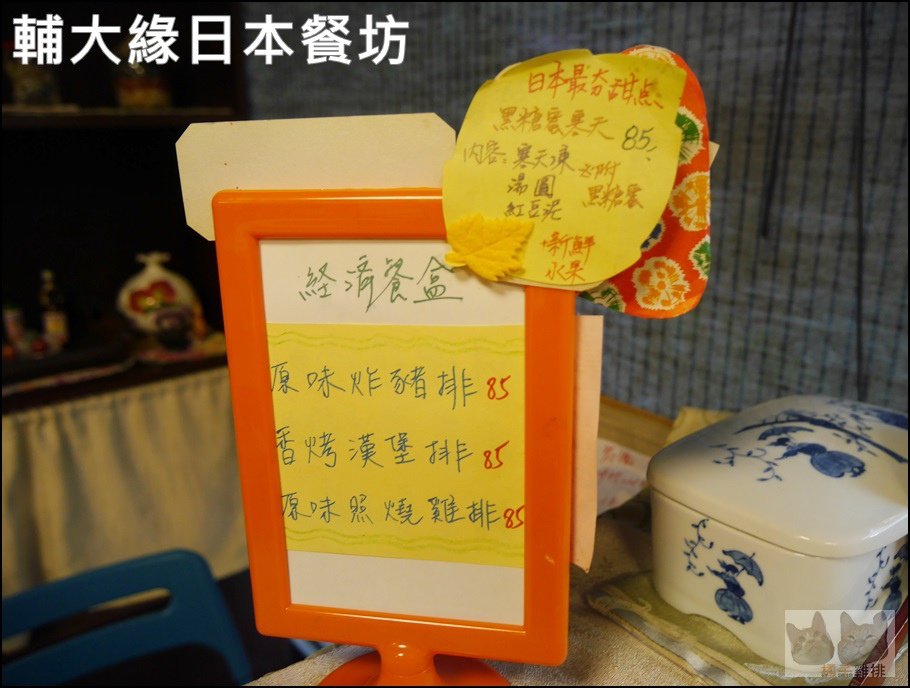 輔大緣日本餐坊
日本最夯甜点
黑糖蜜寒天 85.
内容:寒天凍
湯圓
紅豆泥
必附
黑糖蜜
+新鮮
水果
経済餐盒
原味炸豬排 85
香烤漢堡排 85
原味照燒雞排 85